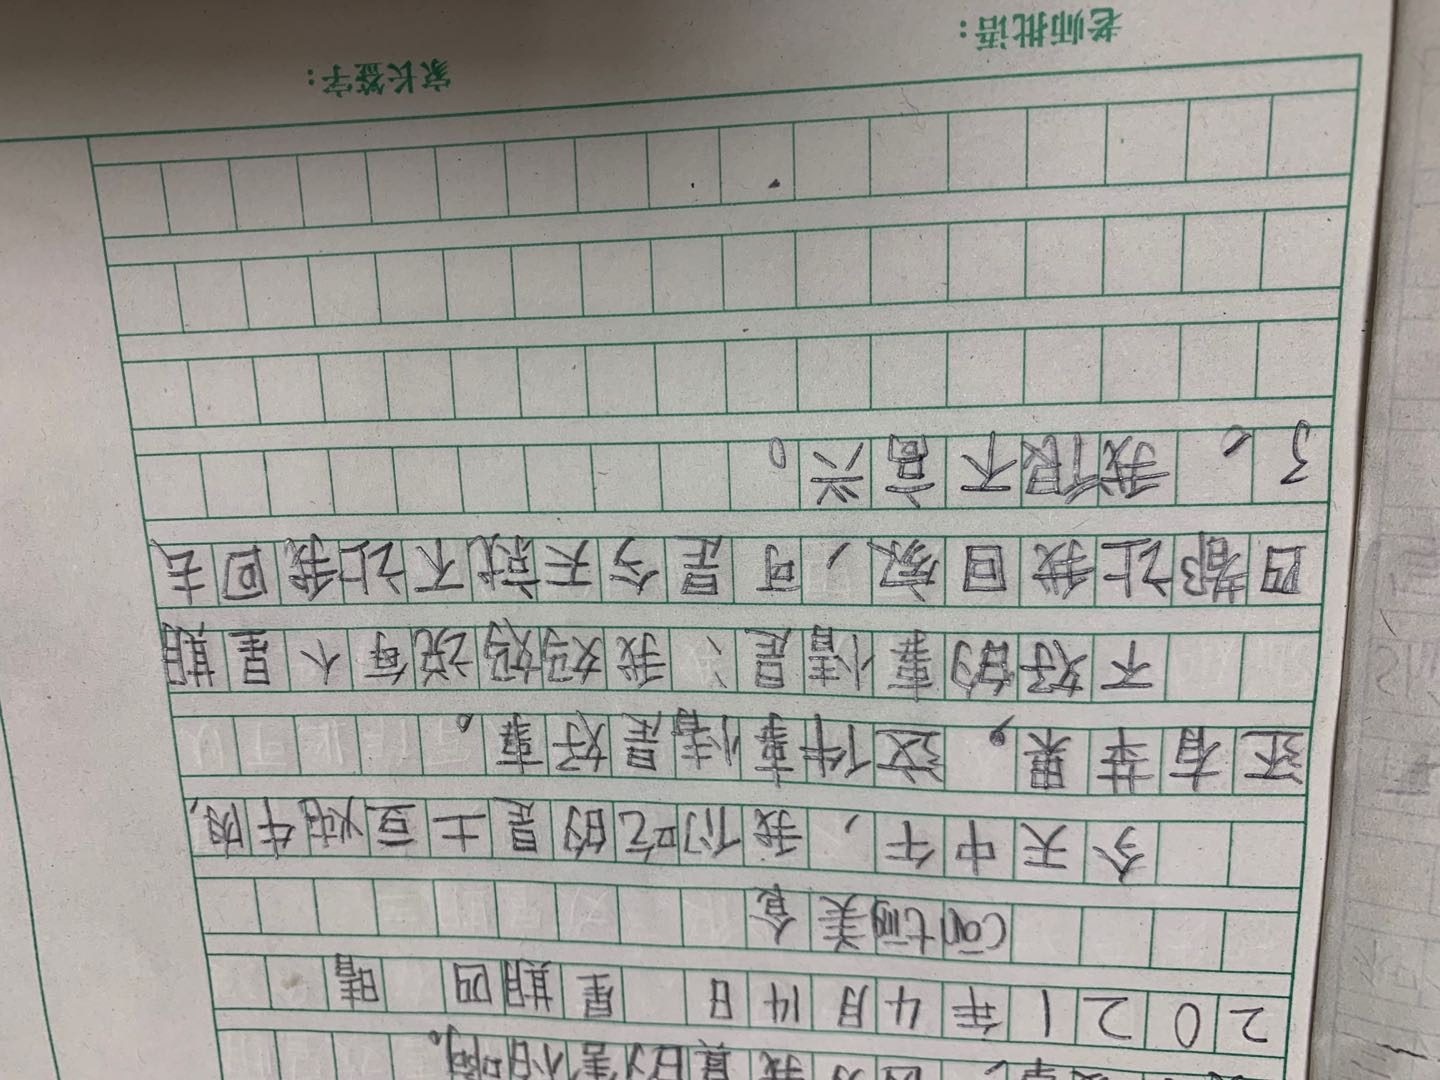 2021年4月14日 星期四 晴
cāntīng美食
今天中午,我们吃的是土豆炖牛肉,
还有苹果,这件事情是好事。
不好的事情是:我妈妈说每个星期
四都让我回家,可是今天就不让我回去
了。我很不高兴。
老师批语: 家长签字: